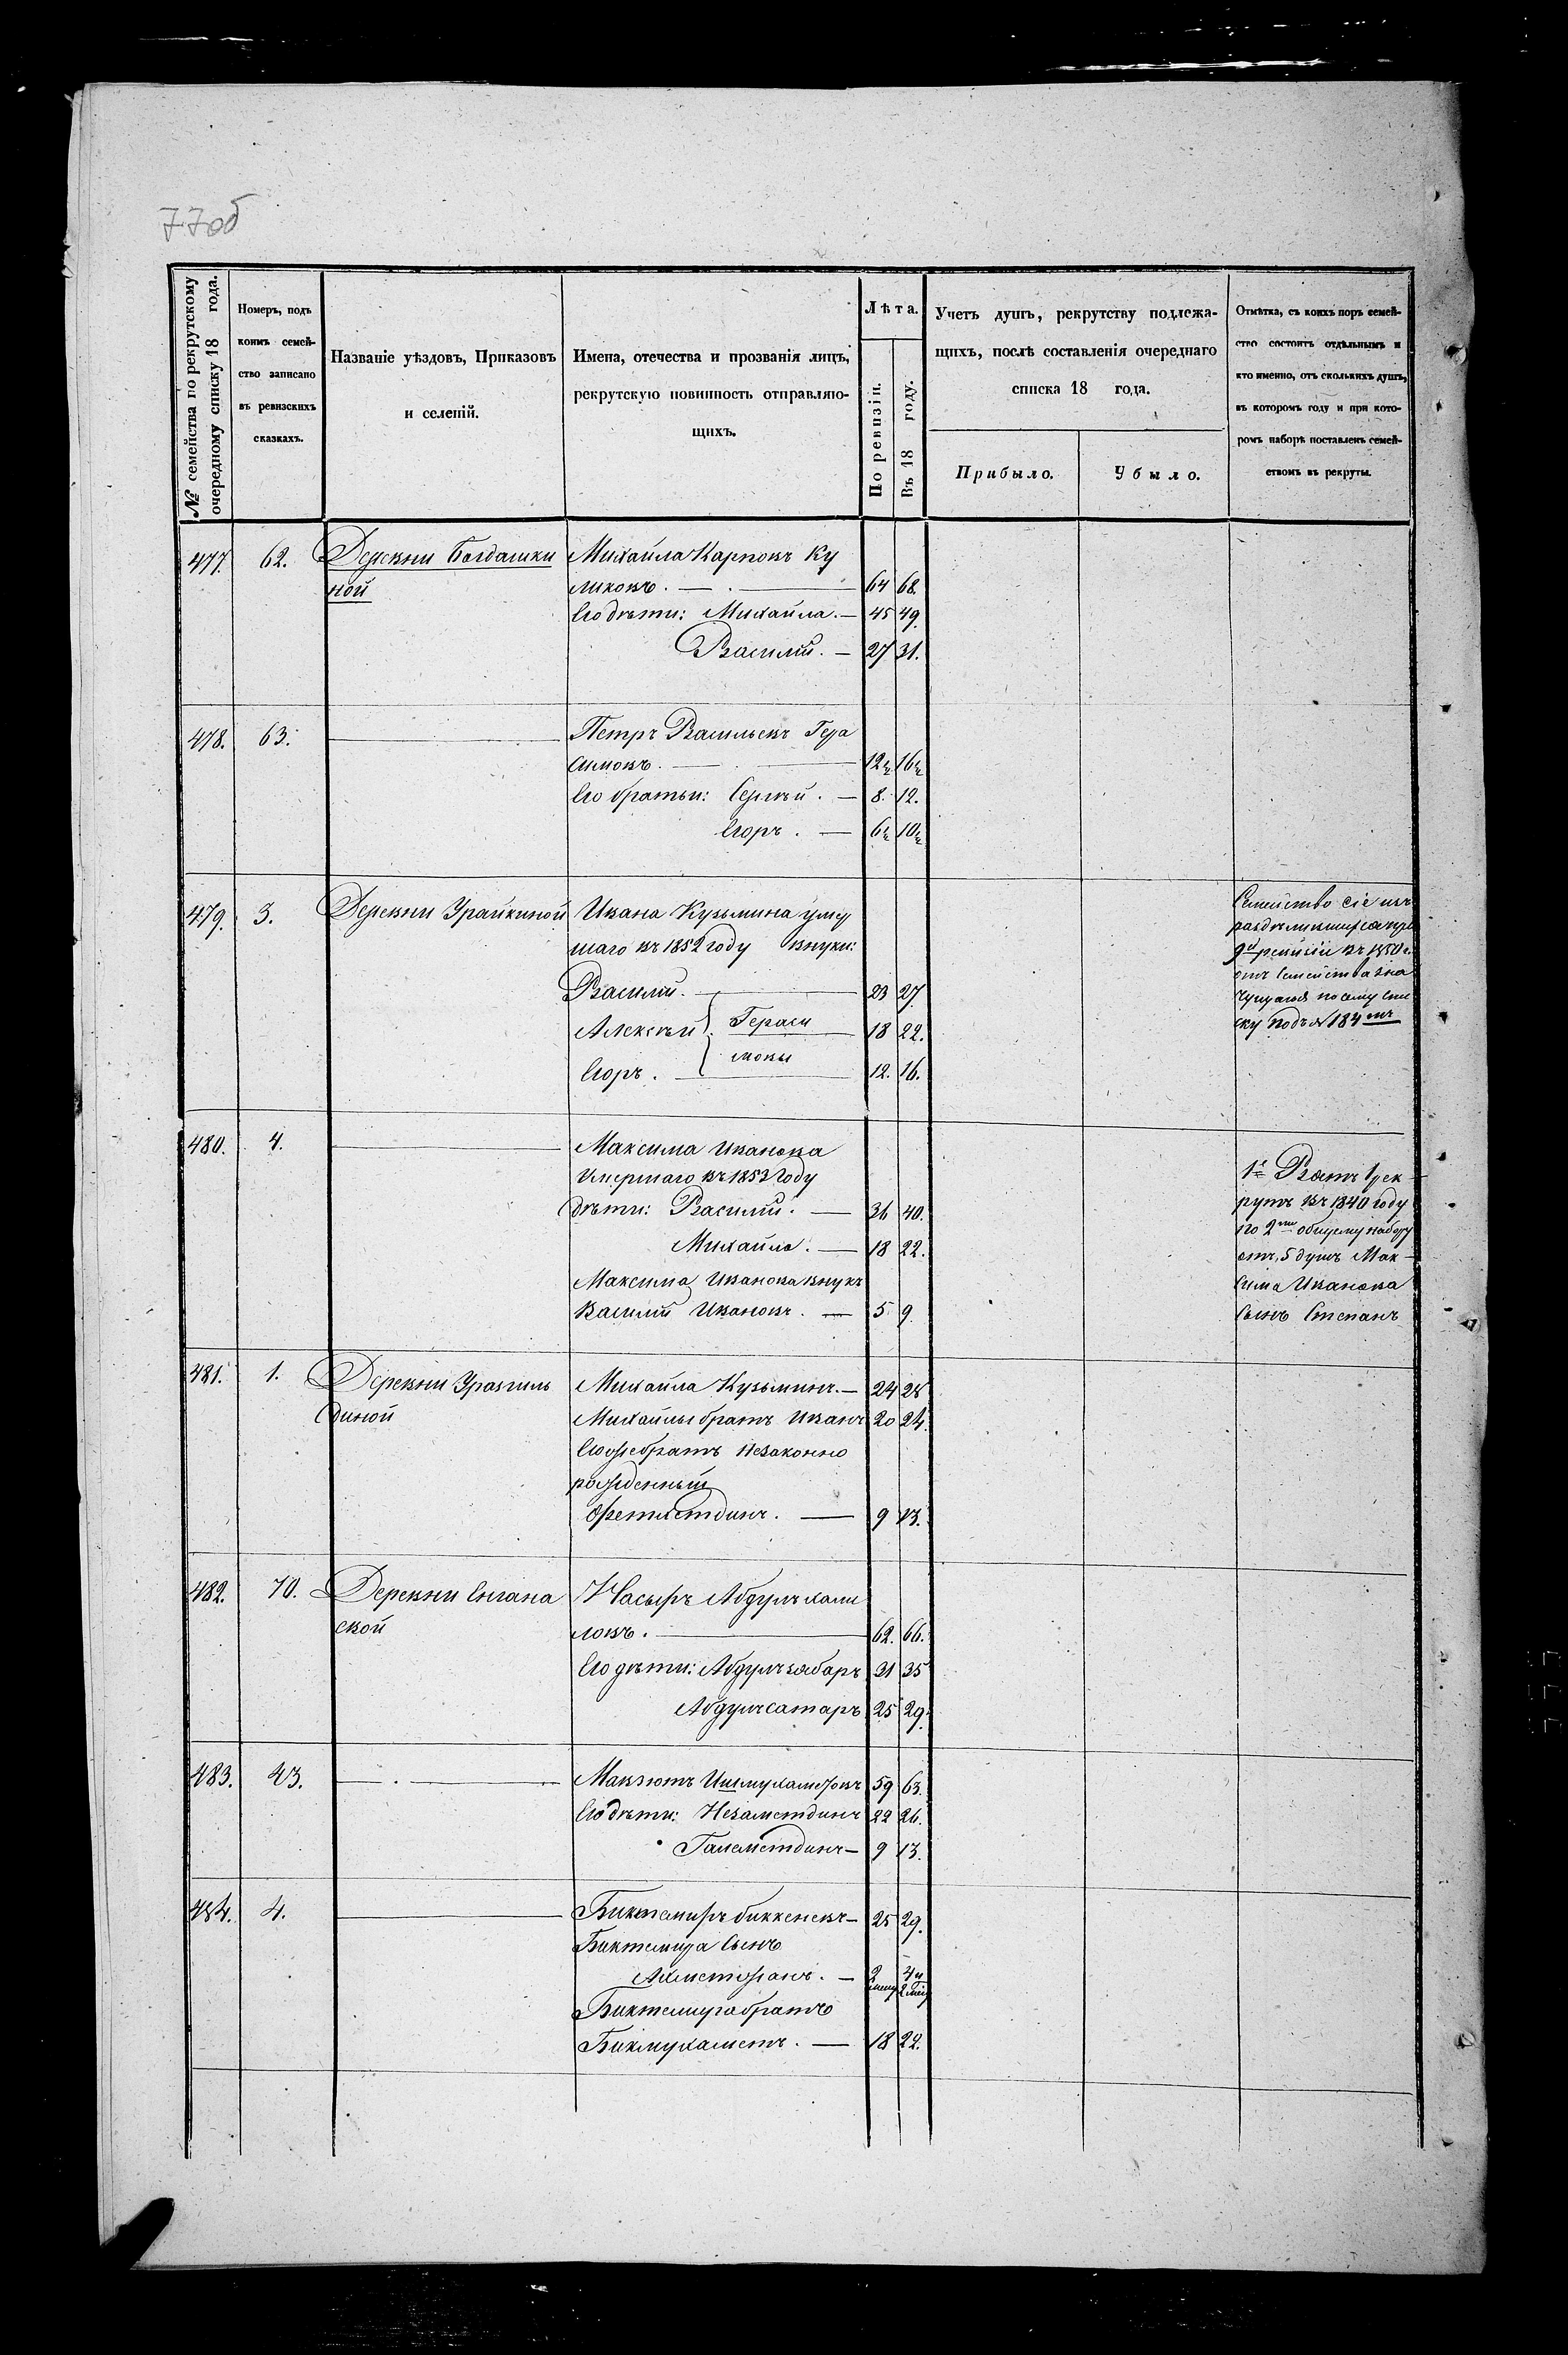 77об
№ семейства по рекрутскому
очередному списку 18 года.
Номеръ, подъ
коимъ семей-
ство записано
въ ревизскихъ
сказкахъ.
Названіе уѣздовъ, Приказовъ
и селеній.
Имена, отечества и прозванія лицъ,
рекрутскую повинность отправляю-
щихъ.
Лѣта.
По ревизіи.
Въ 18 году.
Учетъ душъ, рекрутству подлежа-
щихъ, послѣ составленія очереднаго
списка 18 года.
Прибыло.
Убыло.
Отмѣтка, съ коихъ поръ семей-
ство состоитъ отдѣльнымъ и
кто именно, отъ сколькихъ душъ,
въ которомъ году и при кото-
ромъ наборѣ поставленъ семей-
ствомъ въ рекруты.
477. 62. Деревни Богдашки Михайла Карповъ Ку
ной ликовъ. — 64 68.
Его дѣти: Михайла. — 45 49.
Василій. — 27 31.
478. 63. Петръ Васильевъ Гера
симовъ. — 12½ 16½
Его братьи: Сергѣй. — 8. 12.
Егоръ. — 6½ 10½
479. 3. Деревни Урайкиной Ивана Кузьмина умер
шаго въ 1852 году внуки:
Василій. — 23 27
Алексѣй Гераси 18 22.
мовы
Егоръ. 12. 16.
Семейство сіе изъ
раздѣлившихся
9й ревизіи въ 1850 г.
отъ семейства зна
чущагося по сему спи
ску подъ № 184мъ
480. 4. Максима Иванова
Умершаго въ 1853 году
дѣти: Василій. — 36 40.
Михайла. — 18 22.
Максима Иванова внукъ
Василій Ивановъ. — 5 9.
1е Взятъ в рек
рутъ въ 1840 году
по 2му общему набору
отъ 5 душъ Мак-
сима Иванова
Сынъ Степанъ
481. 1. Деревни Уразгиль Михайла Кузьминъ. — 24 28
диной Михайлы братъ Иванъ 20 24.
Его же братъ незаконно
рожденный
Фетхетдинъ. — 9 13.
482. 70. Деревни Енгана Насыръ Абдулъхали
ской ловъ. — 62. 66.
Его дѣти: Абдулъзябаръ 31 35
Абдулсатаръ 25 29.
483. 43. Макзютъ Ишмухаметовъ 59 63.
Его дѣти: Незаметдинъ 22 26.
Галеметдинъ — 9 13.
484. 4. Биктемиръ Биккеневъ — 25 29.
Биктемира Сынъ
Ахметжанъ. — 2 мец 4 и 2 мец
Биктемира братъ
Бикмухаметъ. — 18 22.